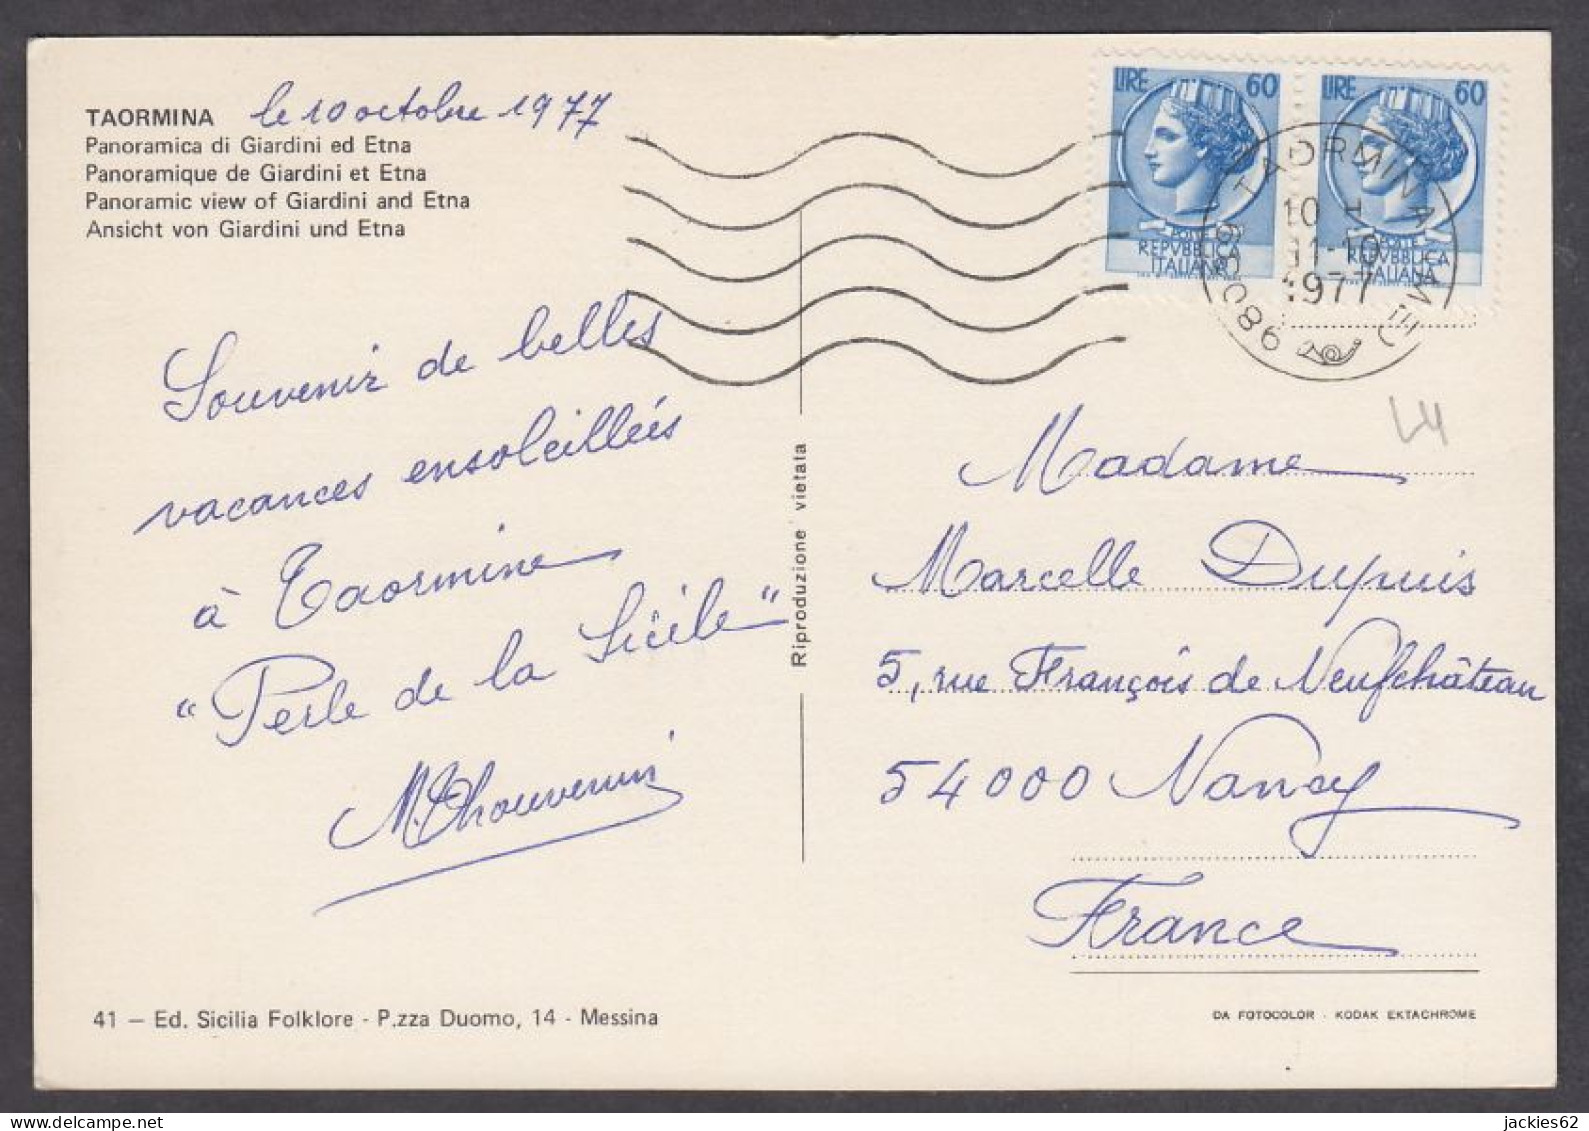 TAORMINA le 10 octobre 1977
Panoramica di Giardini ed Etna
Panoramique de Giardini et Etna
Panoramic view of Giardini and Etna
Ansicht von Giardini und Etna
Souvenir de belles
vacances ensoleillées
à Taormine
"Perle de la Sicile"
M. Thouvenin
41 — Ed. Sicilia Folklore - P.zza Duomo, 14 - Messina
Riproduzione vietata
LIRE 60
POSTE
REPVBBLICA
ITALIANA
LIRE 60
POSTE
REPVBBLICA
ITALIANA
98039 TAORMINA (ME)
10
11-10
1977
Madame
Marcelle Dupuis
5, rue François de Neufchâteau
54000 Nancy
France
DA FOTOCOLOR - KODAK EKTACHROME
jackies62